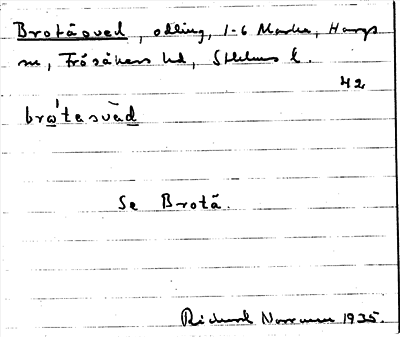 Brotåsved, odling, 1-6 Marka, Hargs
sn, Frösåkers hd, Sthlms l.
42
bra'tasvàd
Se Brotå.
Richard Norrman 1935.